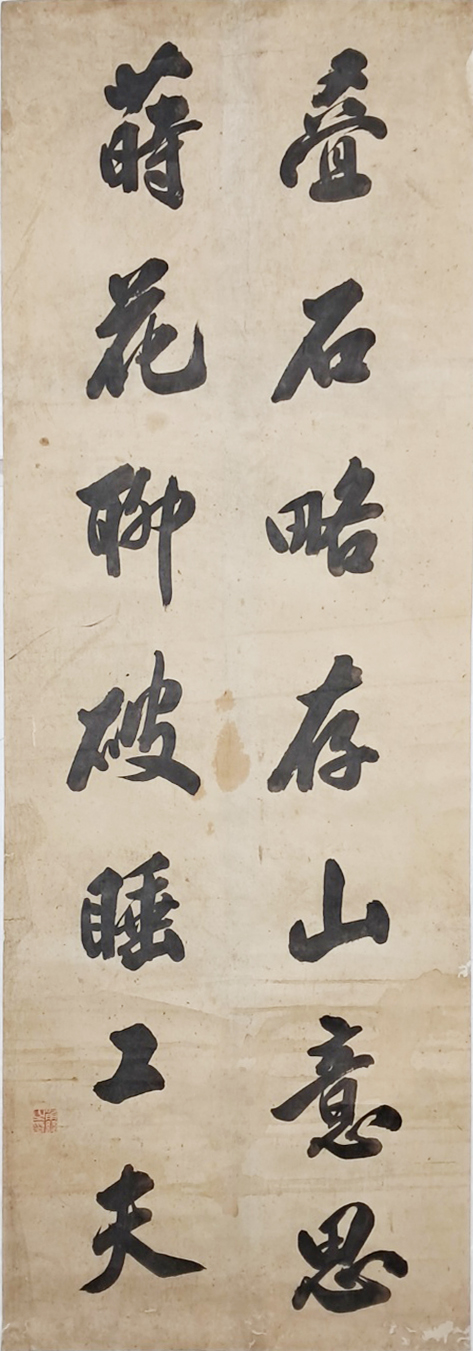 叠石略存山意思
蒔花聊破睡工夫